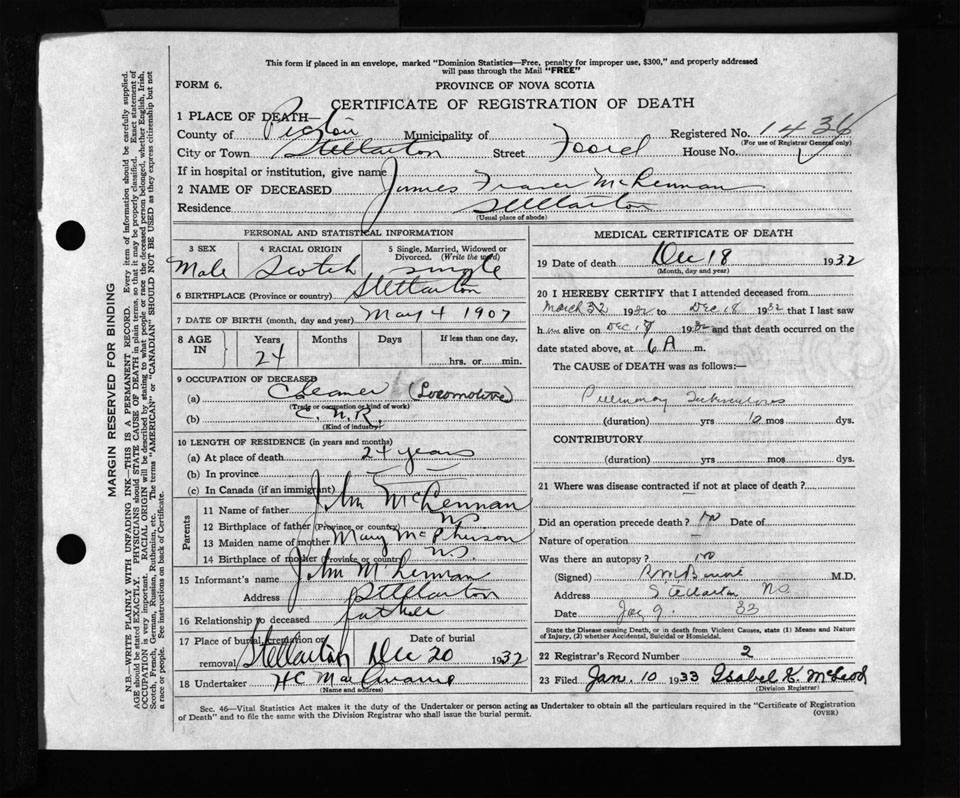 This form if placed in an envelope, marked "Dominion Statistics—Free, penalty for improper use, $300," and properly addressed
will pass through the Mail "FREE"
FORM 6.
PROVINCE OF NOVA SCOTIA
CERTIFICATE OF REGISTRATION OF DEATH
1 PLACE OF DEATH—
County of Pictou Municipality of Registered No. 1436
(For use of Registrar General only)
City or Town Stellarton Street Foord House No.
If in hospital or institution, give name
2 NAME OF DECEASED James Fraser McLennan
Residence Stellarton
(Usual place of abode)
PERSONAL AND STATISTICAL INFORMATION
3 SEX 4 RACIAL ORIGIN 5 Single, Married, Widowed or Divorced. (Write the word)
Male Scotch single
6 BIRTHPLACE (Province or country) Stellarton
7 DATE OF BIRTH (month, day and year) May 4 1907
8 AGE IN Years Months Days If less than one day,
24 hrs. or min.
9 OCCUPATION OF DECEASED
(a) Cleaner (Locomotive)
(Trade or occupation or kind of work)
(b) C.N.R.
(Kind of industry)
10 LENGTH OF RESIDENCE (in years and months)
(a) At place of death 24 years
(b) In province
(c) In Canada (if an immigrant)
Parents
11 Name of father John McLennan
12 Birthplace of father (Province or country) N.S
13 Maiden name of mother Mary McPherson
14 Birthplace of mother (Province or country) N.S.
15 Informant's name John McLennan
Address Stellarton
16 Relationship to deceased father
17 Place of burial, cremation or removal Stellarton Date of burial Dec 20 1932
18 Undertaker H C
(Name and address)
MEDICAL CERTIFICATE OF DEATH
19 Date of death Dec 18 1932
(Month, day and year)
20 I HEREBY CERTIFY that I attended deceased from
March 1932 to Dec 18 1932 that I last saw
h alive on Dec 1932 and that death occurred on the
date stated above, at 6 A m.
The CAUSE of DEATH was as follows:—
Pulmonary Tuberculosis
(duration) yrs 10 mos dys.
CONTRIBUTORY
(duration) yrs mos dys.
21 Where was disease contracted if not at place of death?
Did an operation precede death? no Date of
Nature of operation
Was there an autopsy? no
(Signed) M.D.
Address Stellarton N.S.
Date 9. 33
State the Disease causing Death, or in death from Violent Causes, state (1) Means and Nature
of Injury, (2) whether Accidental, Suicidal or Homicidal.
22 Registrar's Record Number 2
23 Filed Jan. 10 1933 Isabel K. McLeod
(Division Registrar)
Sec. 46—Vital Statistics Act makes it the duty of the Undertaker or person acting as Undertaker to obtain all the particulars required in the "Certificate of Registration
of Death" and to file the same with the Division Registrar who shall issue the burial permit.
(OVER)
MARGIN RESERVED FOR BINDING
N.B.—WRITE PLAINLY WITH UNFADING INK—THIS IS A PERMANENT RECORD. Every item of information should be carefully supplied.
AGE should be stated EXACTLY. PHYSICIANS should STATE CAUSE OF DEATH in plain terms, so that it may be properly classified. Exact statement of
OCCUPATION is very important. RACIAL ORIGIN will be described by stating to what people or race the deceased person belonged, whether English, Irish,
Scotch, French, German, Russian, Ruthenian, etc. The terms "AMERICAN" or "CANADIAN" SHOULD NOT BE USED as they express citizenship but not
a race or people. See instructions on back of Certificate.